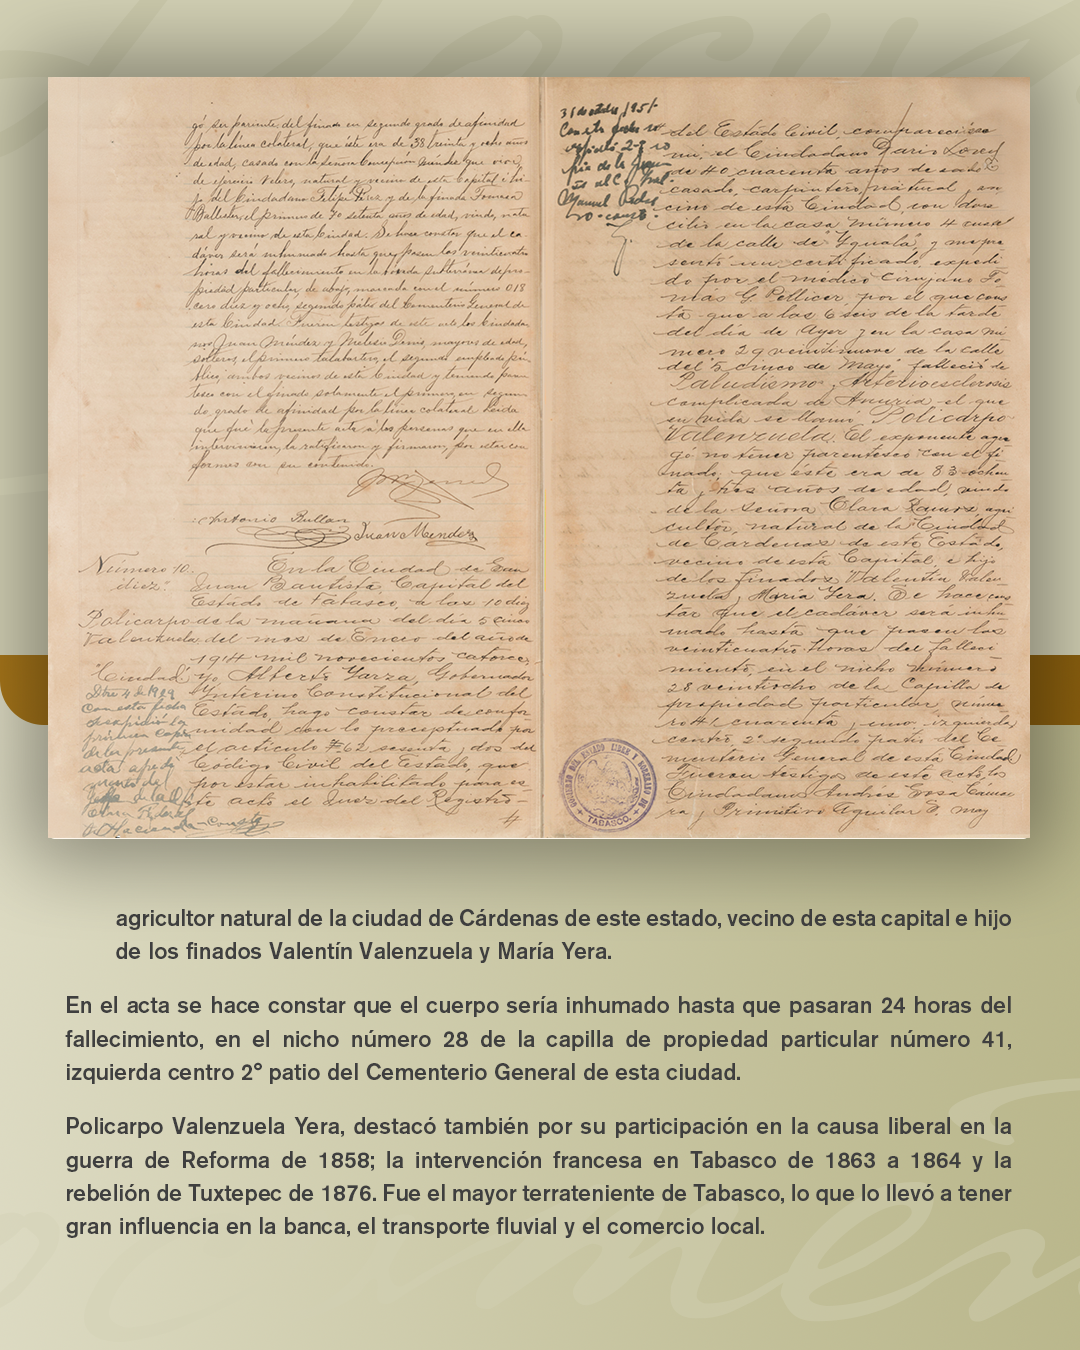 gó ser pariente del finado en segundo grado de afinidad
por la línea colateral, que éste era de 38 treinta y ocho años
de edad, casado con la Señora Concepción Méndez que vive,
de ejercicio natural y vecino de esta Capital é hi-
jo del Ciudadano Felipe y de la finada Tomasa
Ballester, el primero de 70 setenta años de edad, viudo, natu
ral y vecino de esta Ciudad. Se hace constar que el ca
dáver será inhumado hasta que pasen las veinticuatro
horas del fallecimiento en la bóveda subterránea de pro-
piedad particular de abajo, marcada con el número 018
cero diez y ocho, segundo patio del Cementerio General de
esta Ciudad. Fueron testigos de este acto los Ciudada
nos Juan Méndez y Melesio Denis, mayores de edad,
solteros, el primero talabartero, el segundo empleado pú
blico, ambos vecinos de esta Ciudad y teniendo paren
tesco con el finado solamente el primero, en segun-
do grado de afinidad por la línea colateral. Leída
que fué la presente acta á las personas que en ella
intervinieron, la ratificaron y firmaron, por estar con
formes con su contenido.
Antonio Rullan
Juan Mendez
Número 10.
diez.
Policarpo
Valenzuela
"Ciudad"
En la Ciudad de San
Juan Bautista, Capital del
Estado de Tabasco, a las 10 diez
de la mañana del día 5 cinco
del mes de Enero del año de
1914 mil novecientos catorce,
yo, Alberto Yarza, Gobernador
Interino Constitucional del
Estado, hago constar de confor
midad con lo preceptuado por
el artículo #62 sesenta y dos del
Código Civil del Estado, que
por estar inhabilitado para es
te acto el Juez del Registro-
Con esta fecha
se expidió la
primera copia
de la presente
acta a pedi
mento del
Hacienda-Conste
31 de octubre/951
Con esta fecha se
expidió
pia de la
te al C.
Manuel
ro-conste.
del Estado Civil, compareció an
te mí, el Ciudadano Dario
de 40 cuarenta años de edad
casado, carpintero, natural y ve
cino de esta Ciudad, con domi
cilio en la casa número 4 cua
de la calle de "Iguala", y me pre
sentó un certificado, expedi
do por el médico Cirujano To
más G. Pellicer, por el que cons
ta que a las 6 seis de la tarde
del día de ayer y en la casa nú
mero 29 veintinueve de la calle
del "5 cinco de Mayo", falleció de
Paludismo y Arterioesclerosis
complicada de Anuria, el que
en vida se llamó Policarpo
Valenzuela. El exponente agre
gó no tener parentesco con el fi
nado, que éste era de 83 ochen
ta y tres años de edad, viudo
de la señora Clara Ramos, agri
cultor, natural de la Ciudad
de Cárdenas de este Estado,
vecino de esta Capital, e hijo
de los finados Valentín Valen
zuela y María Yera. Se hace cons
tar que el cadáver será inhu
mado hasta que pasen las
veinticuatro horas del falleci
miento, en el nicho número
28 veintiocho de la Capilla de
propiedad particular núme
ro 41 cuarenta y uno, izquierda,
centro 2° segundo patio del Ce
menterio General de esta Ciudad.
Fueron testigos de este acto los
Ciudadanos Andrés Sosa Cáma
ra y Primitivo Aguilar S. may
GOBIERNO DEL ESTADO LIBRE Y SOBERANO DE
TABASCO.
agricultor natural de la ciudad de Cárdenas de este estado, vecino de esta capital e hijo
de los finados Valentín Valenzuela y María Yera.
En el acta se hace constar que el cuerpo sería inhumado hasta que pasaran 24 horas del
fallecimiento, en el nicho número 28 de la capilla de propiedad particular número 41,
izquierda centro 2° patio del Cementerio General de esta ciudad.
Policarpo Valenzuela Yera, destacó también por su participación en la causa liberal en la
guerra de Reforma de 1858; la intervención francesa en Tabasco de 1863 a 1864 y la
rebelión de Tuxtepec de 1876. Fue el mayor terrateniente de Tabasco, lo que lo llevó a tener
gran influencia en la banca, el transporte fluvial y el comercio local.